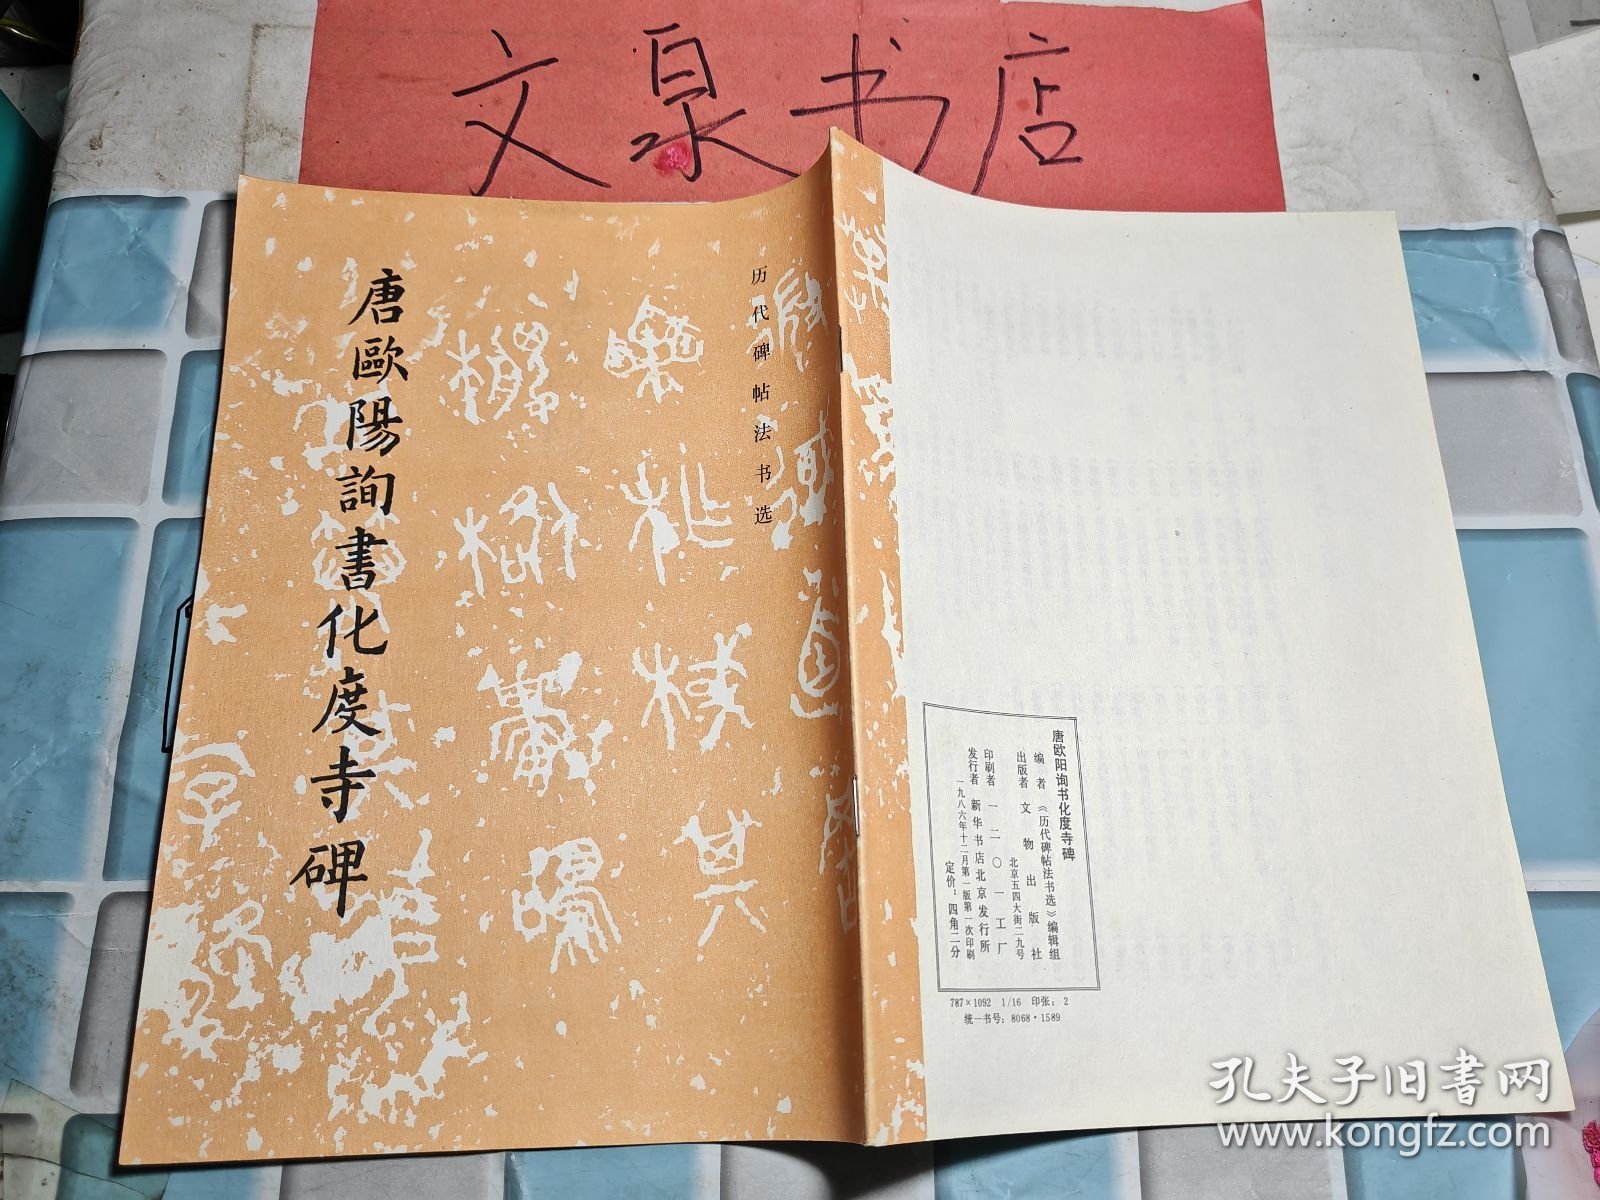 文泉书店
唐歐陽詢書化度寺碑
历代碑帖法书选
唐欧阳询书化度寺碑
编者 《历代碑帖法书选》编辑组
出版者 文物出版社
北京五四大街二九号
印刷者 一二〇一工厂
发行者 新华书店北京发行所
一九八六年十二月第一版第一次印刷
定价：四角二分
787×1092 1/16 印张：2
统一书号：8068·1589
孔夫子旧书网
www.kongfz.com